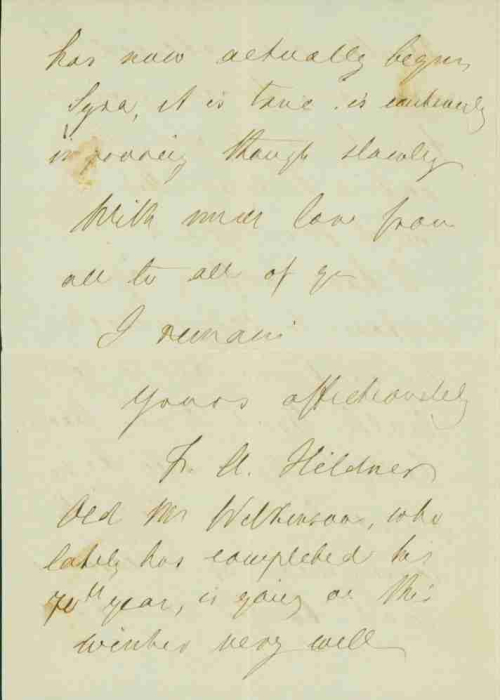 has now actually begun
Syra, it is true is continually
improving though slowly
With much love from
all to all of you
I remain
Yours affectionately
F. A. Hildner
Old Mr Wilkinson, who
lately has completed his
70th year, is going on this
winter very well